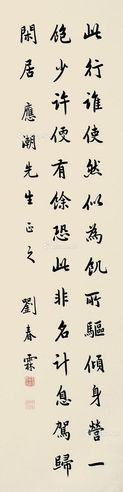 此行誰使然似為飢所驅傾身營一
飽少許便有餘恐此非名計息駕歸
閑居 應潮先生正之
劉春霖